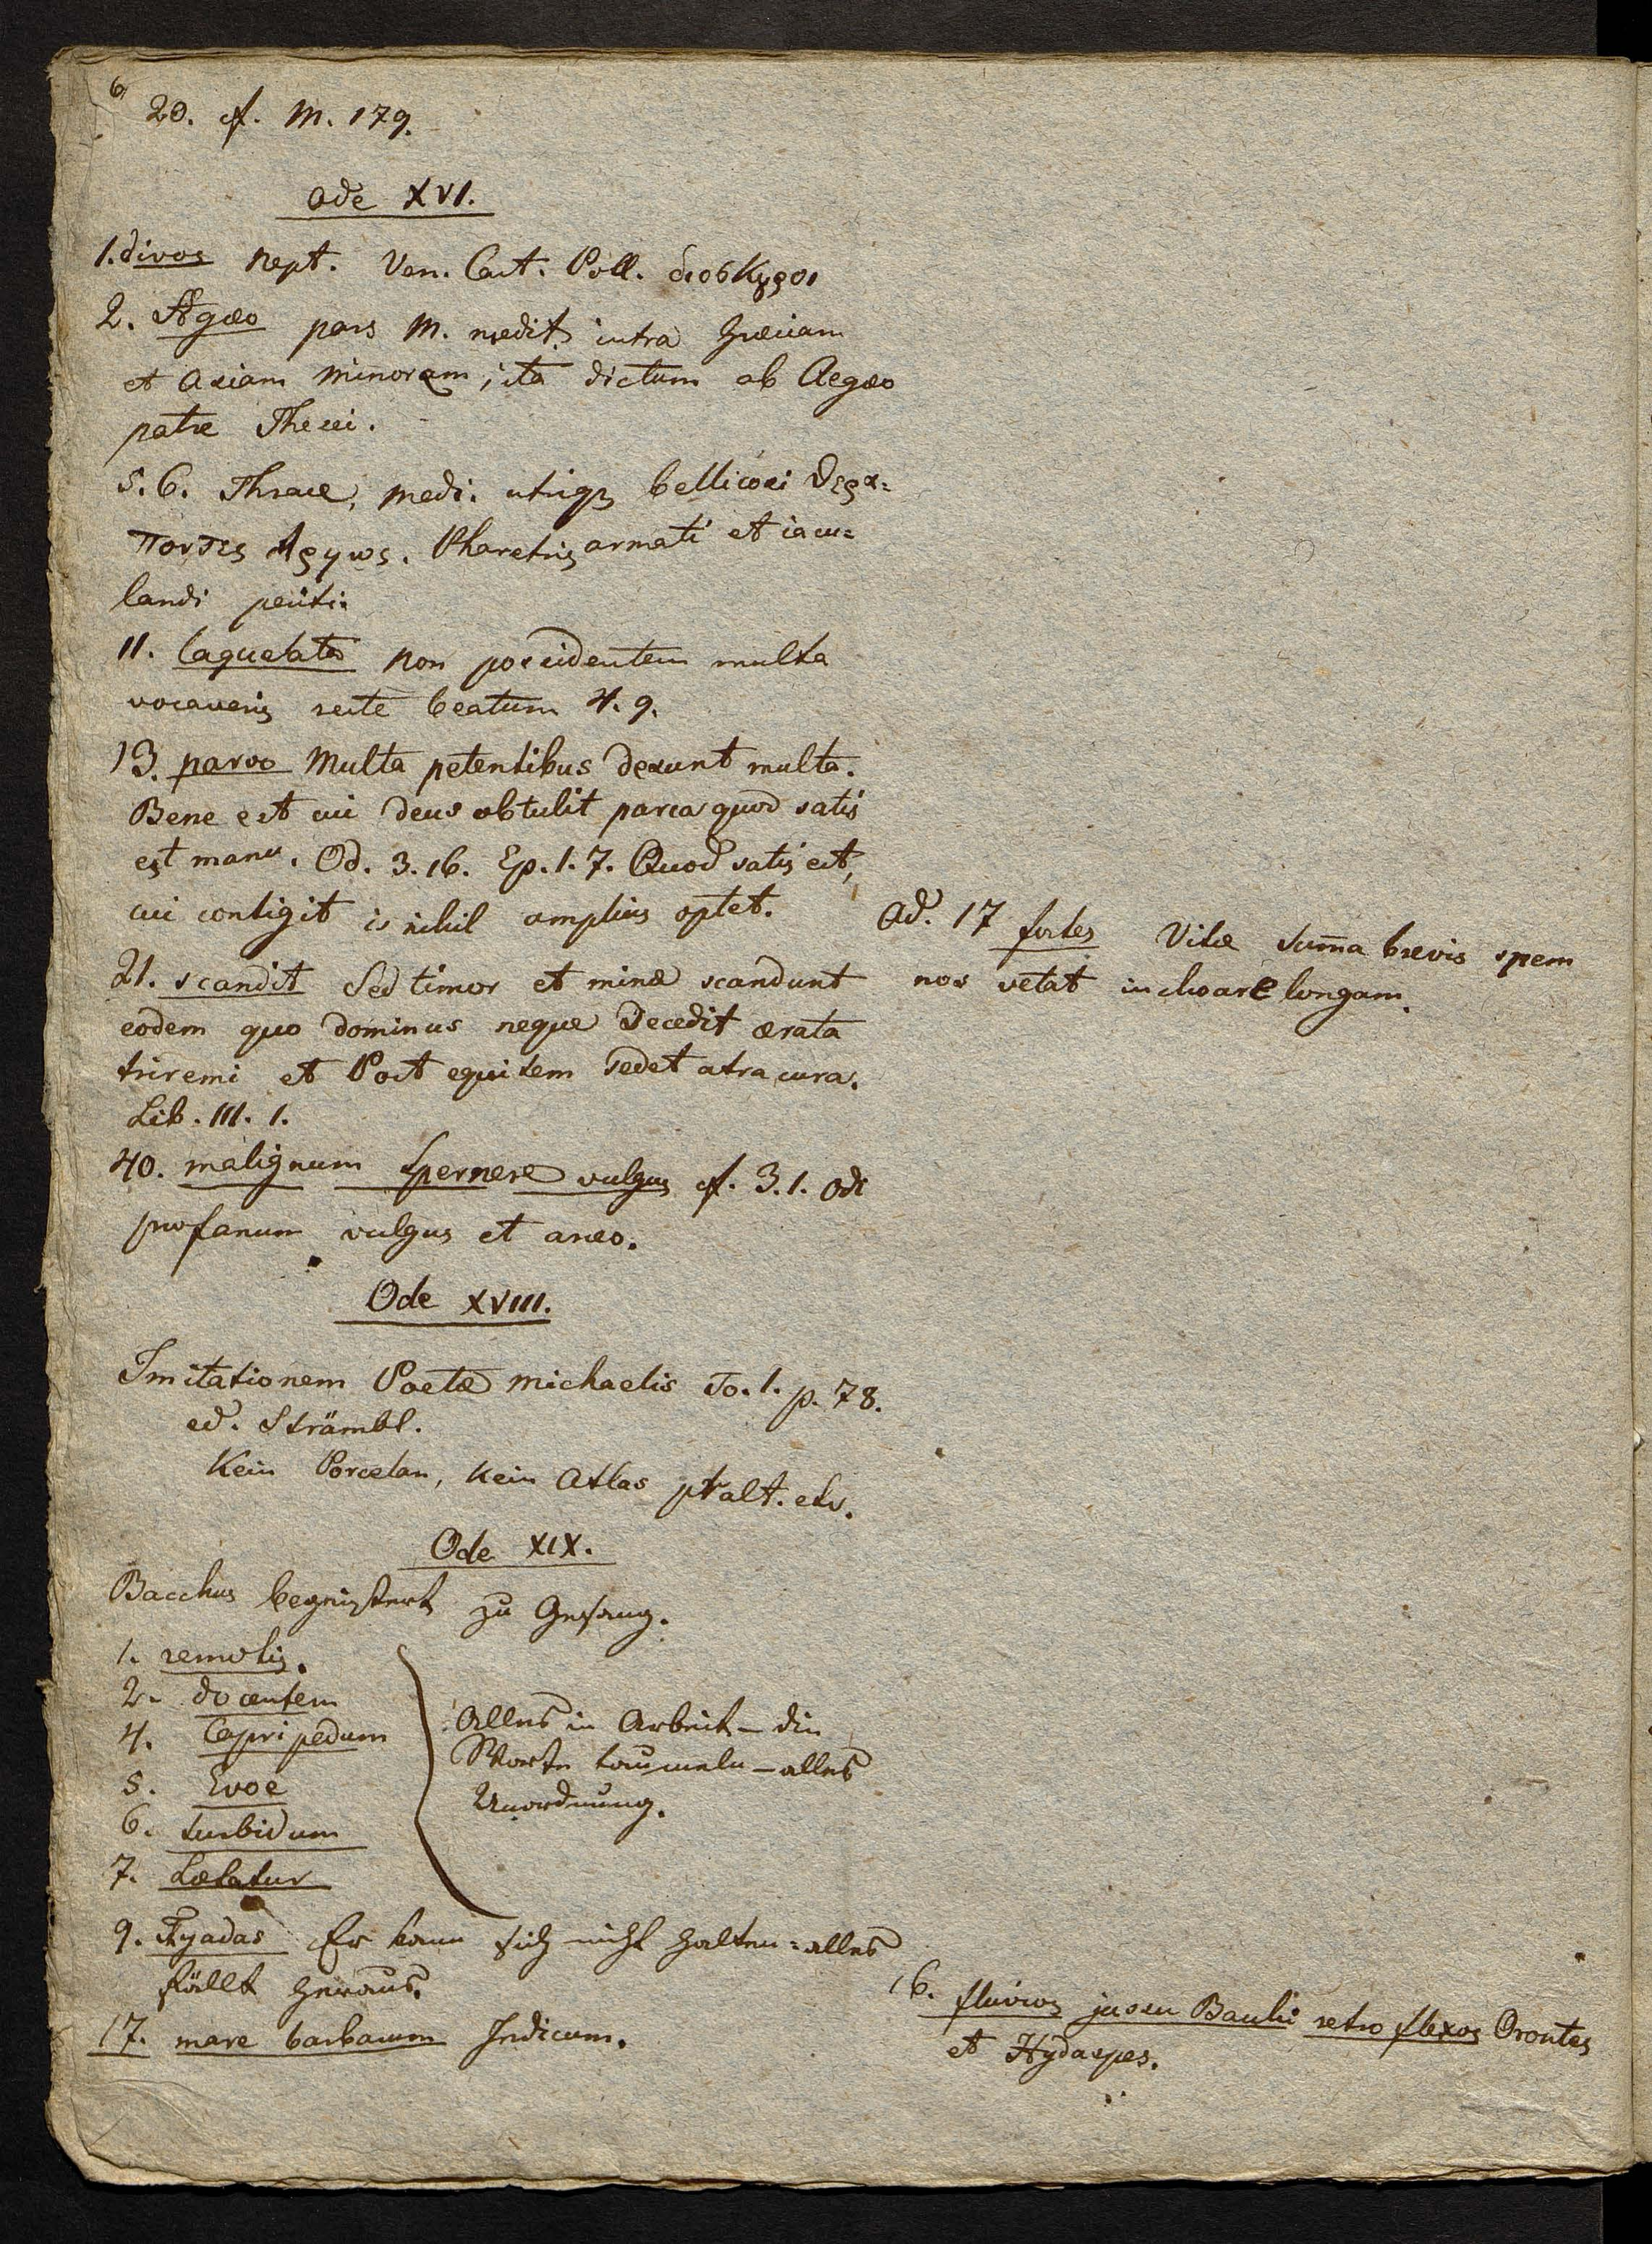 6
20. cf. M. 179.
Ode XVI.
1. divos Nept. Ven. Cast. Poll. διοσκυροι
2. Ægæo pars M. medit. intra Græciam
et Asiam minorem, ita dictum ab Aegæo
patre Thesei.
5. 6. Thrace, Medi. utriq3 bellicosi
Pharetris armati et iacu=
landi periti.
11. laqueata non possidentem multa
vocaveris recte beatum 4. 9.
13. parvo Multa petentibus desunt multa.
Bene est cui deus obtulit parca quod satis
est manu. Od. 3. 16. Ep. 1. 7. Quod satis est,
cui contigit is nihil amplius optet.
Ad. 17 fortes Vitæ sum̄a brevis spem
nos vetat inchoare longam.
21. scandit Sed timor et minæ scandunt
eodem quo dominus neque decedit ærata
triremi et Post equitem sedet atra cura.
Lib. III. 1.
40. malignum spernere vulgus cf. 3. 1. Odi
profanum vulgus et arceo.
Ode XVIII.
Imitationem Poetæ Michaelis To. 1. p. 78.
ed. Strämbl.
Kein Porcelan, kein Atlas pralt. etc.
Ode XIX.
Bacchus begeistert zu Gesang.
1. remotis.
2. docentem
4. Capripedum
5. Evoe
6. turbidum
7. Lætatur
Alles in Arbeit - die
Worte taumeln - alles
Unordnung.
9. Thyadas Er kann sich nicht halten = alles
fällt heraus.
16. fluvios jussu Bacchi retro flexos Orontes
et Hydaspes.
17. mare barbarum Indicum.